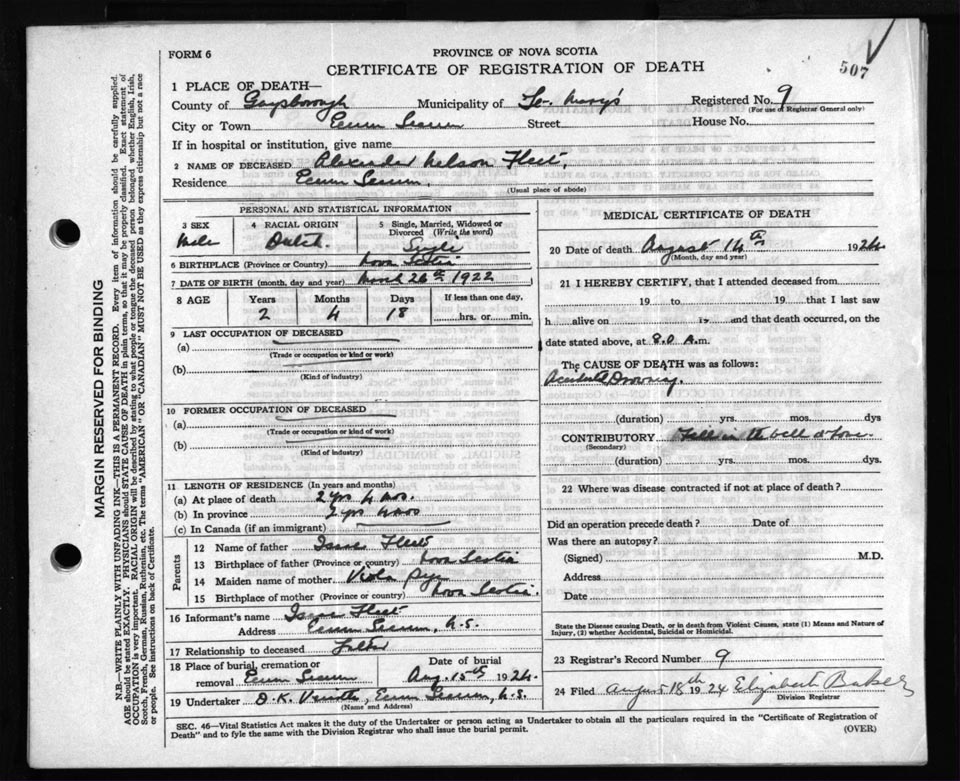 FORM 6
PROVINCE OF NOVA SCOTIA
507
CERTIFICATE OF REGISTRATION OF DEATH
1 PLACE OF DEATH—
County of Guysborough Municipality of St. Mary's Registered No. 9
(For use of Registrar General only)
City or Town Ecum Secum Street House No.
If in hospital or institution, give name
2 NAME OF DECEASED Alexander Nelson Fleet.
Residence Ecum Secum.
(Usual place of abode)
PERSONAL AND STATISTICAL INFORMATION
3 SEX Male
4 RACIAL ORIGIN Dutch
5 Single, Married, Widowed or Divorced (Write the word) Single
6 BIRTHPLACE (Province or Country) Nova Scotia
7 DATE OF BIRTH (month, day and year) March 26th 1922
8 AGE Years Months Days If less than one day,
2 4 18 hrs. or min.
9 LAST OCCUPATION OF DECEASED
(a)
(Trade or occupation or kind or work)
(b)
(Kind of industry)
10 FORMER OCCUPATION OF DECEASED
(a)
(Trade or occupation or kind or work)
(b)
(Kind of industry)
11 LENGTH OF RESIDENCE (In years and months)
(a) At place of death 2 yrs 4 mos.
(b) In province 2 yrs 4 mos
(c) In Canada (if an immigrant)
Parents
12 Name of father Isaac Fleet
13 Birthplace of father (Province or country) Nova Scotia
14 Maiden name of mother Viola Pye
15 Birthplace of mother (Province or country) Nova Scotia.
16 Informant's name Isaac Fleet
Address Ecum Secum, N.S.
17 Relationship to deceased Father
18 Place of burial, cremation or removal Ecum Secum
Date of burial Aug. 15th 1924.
19 Undertaker D.K. Ecum Secum, N.S.
(Name and Address)
MEDICAL CERTIFICATE OF DEATH
20 Date of death August 14th 1924
(Month, day and year)
21 I HEREBY CERTIFY, that I attended deceased from
19 to 19 that I last saw
h alive on 19 and that death occurred, on the
date stated above, at 8.0 A.m.
The CAUSE OF DEATH was as follows:
Accidental Drowning.
(duration) yrs. mos. dys
CONTRIBUTORY Fell in the well
(Secondary)
(duration) yrs. mos. dys.
22 Where was disease contracted if not at place of death?
Did an operation precede death? Date of
Was there an autopsy?
(Signed) M.D.
Address
Date
State the Disease causing Death, or in death from Violent Causes, state (1) Means and Nature of Injury, (2) whether Accidental, Suicidal or Homicidal.
23 Registrar's Record Number 9
24 Filed August 18th 1924 Elizabeth Baker
Division Registrar
SEC. 46—Vital Statistics Act makes it the duty of the Undertaker or person acting as Undertaker to obtain all the particulars required in the "Certificate of Registration of
Death" and to fyle the same with the Division Registrar who shall issue the burial permit.
(OVER)
MARGIN RESERVED FOR BINDING
N.B.—WRITE PLAINLY WITH UNFADING INK—THIS IS A PERMANENT RECORD. Every item of information should be carefully supplied.
AGE should be stated EXACTLY. PHYSICIANS should STATE CAUSE OF DEATH in plain terms, so that it may be properly classified. Exact statement of
OCCUPATION is very important. RACIAL ORIGIN will be described by stating to what people or tongue the deceased person belonged whether English, Irish,
Scotch, French, German, Russian, Ruthenian, etc. The terms "AMERICAN" OR "CANADIAN" MUST NOT BE USED as they express citizenship but not a race
or people. See instructions on back of Certificate.